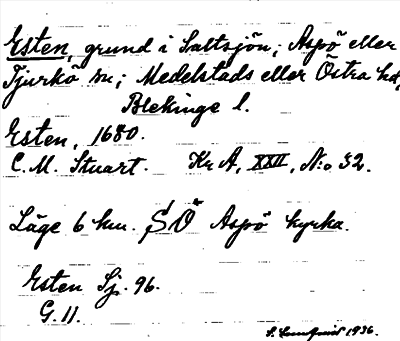 Esten, grund i Saltsjön; Aspö eller
Tjurkö sn; Medelstads eller Östra hd,
Blekinge l.
Esten, 1680.
C. M. Stuart. Kr A, XXII, N:o 32.
Läge 6 km. S Ö Aspö kyrka.
Esten Sj. 96.
G. 11.
S. Lundqvist 1936.